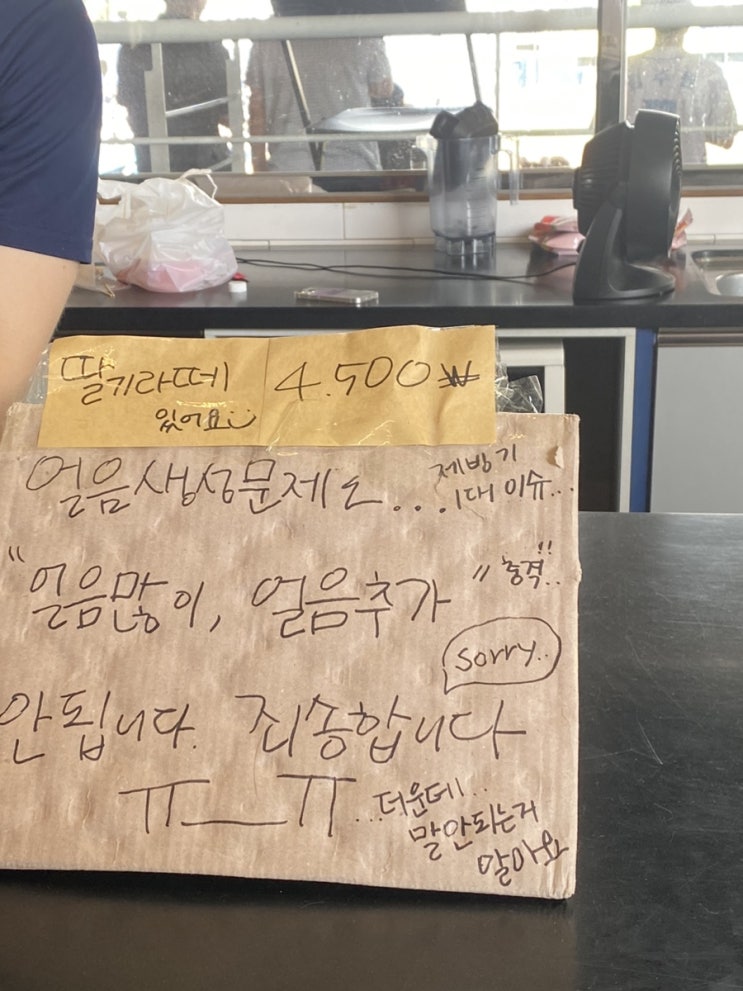 딸기라떼 4.500₩
있어요
얼음생성문제로... 제빙기
1대 이슈...
"얼음많이, 얼음추가" 충격!!..
sorry..
안됩니다. 죄송합니다
ㅠ__ㅠ ...더운데..
말안되는거
알아요